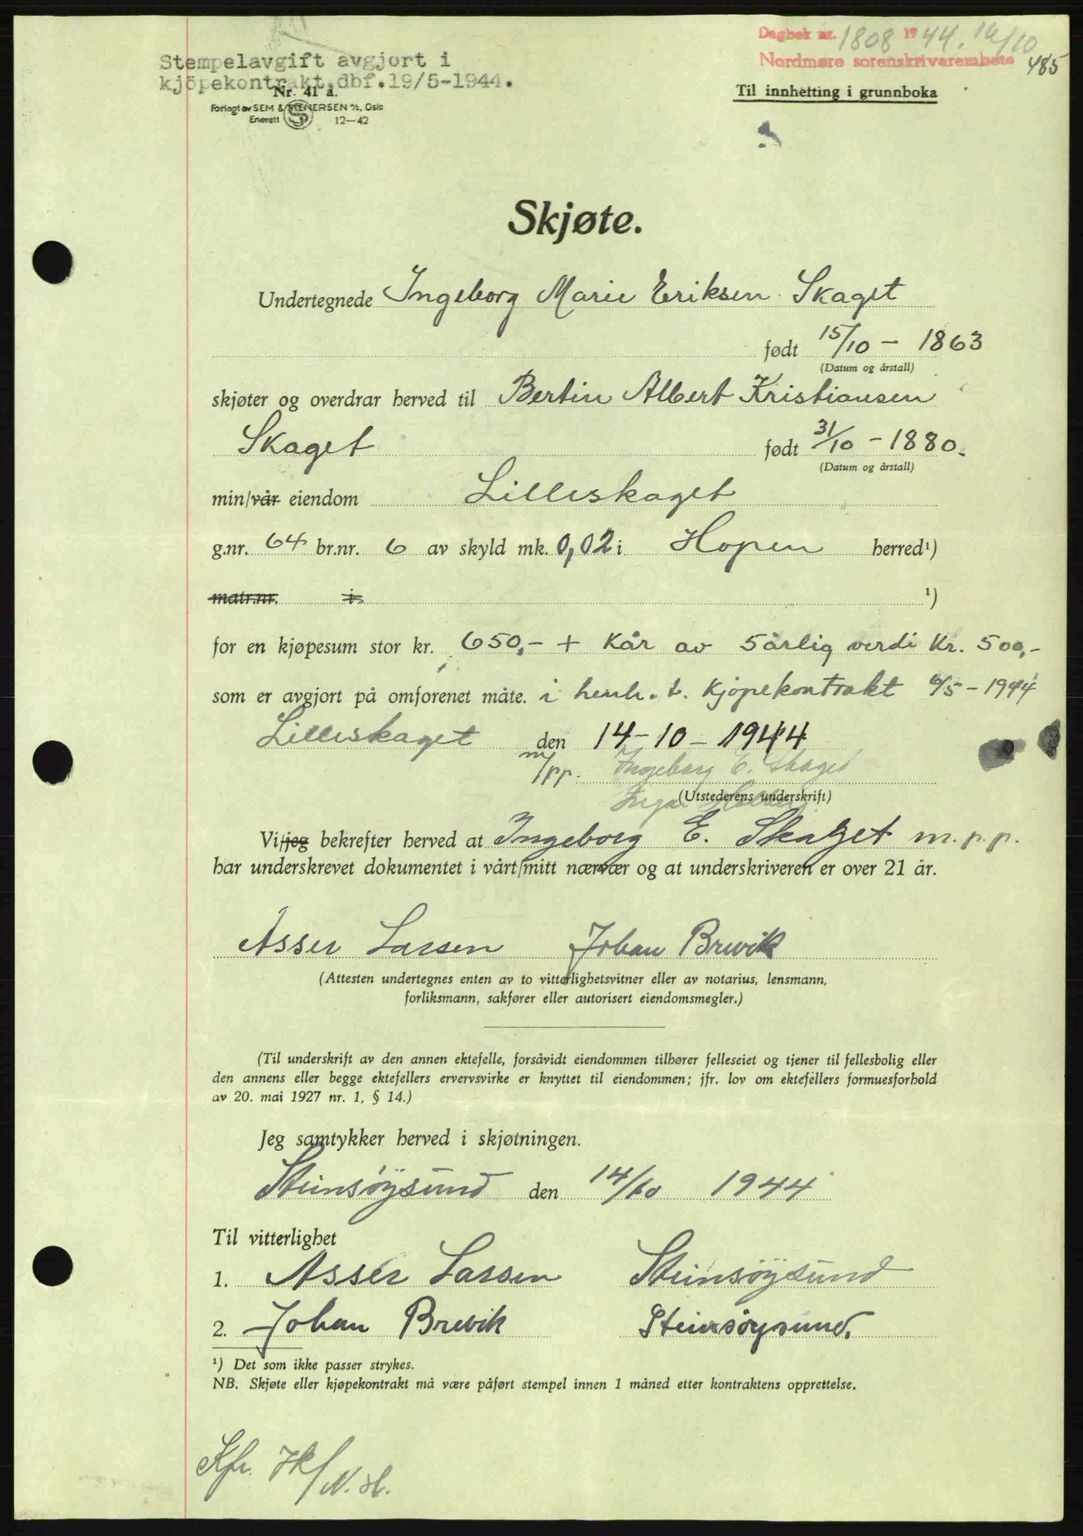 Dagbok nr. 1808 1944. 16/10
Nordmøre sorenskriverembete 485
Stempelavgift avgjort i
kjöpekontrakt dbf.19/5-1944.
Nr. 41 a.
Forlagt av SEM & STENERSEN A/S, Oslo
Enerett 12—42
Til innhefting i grunnboka
Skjøte.
Undertegnede Ingeborg Marie Eriksen Skaget
født 15/10 - 1863
(Datum og årstall)
skjøter og overdrar herved til Bertin Albert Kristiansen
Skaget født 31/10 - 1880.
(Datum og årstall)
min/vår eiendom Lilleskaget
g.nr. 64 br.nr. 6 av skyld mk. 0,02 i Hopen herred¹)
matr.nr. i. ¹)
for en kjøpesum stor kr. 650,- + Kår av 5årlig verdi Kr. 500,-
som er avgjort på omforenet måte. i henh. t. kjöpekontrakt 6/5 - 1944
Lilleskaget den 14-10-1944
m/pp. Ingeborg E. Skaget
(Utstederens underskrift)
Vi/jeg bekrefter herved at Ingeborg E. Skaget m.p.p.
har underskrevet dokumentet i vårt/mitt nærvær og at underskriveren er over 21 år.
Asser Larsen Johan Brevik
(Attesten undertegnes enten av to vitterlighetsvitner eller av notarius, lensmann,
forliksmann, sakfører eller autorisert eiendomsmegler.)
(Til underskrift av den annen ektefelle, forsåvidt eiendommen tilhører felleseiet og tjener til fellesbolig eller
den annens eller begge ektefellers ervervsvirke er knyttet til eiendommen; jfr. lov om ektefellers formuesforhold
av 20. mai 1927 nr. 1, § 14.)
Jeg samtykker herved i skjøtningen.
Steinsöysund den 14/10 1944
Til vitterlighet
1. Asser Larsen Steinsöysund
2. Johan Brevik Steinsöysund.
¹) Det som ikke passer strykes.
NB. Skjøte eller kjøpekontrakt må være påført stempel innen 1 måned etter kontraktens opprettelse.
Kfr. JK/N.H.